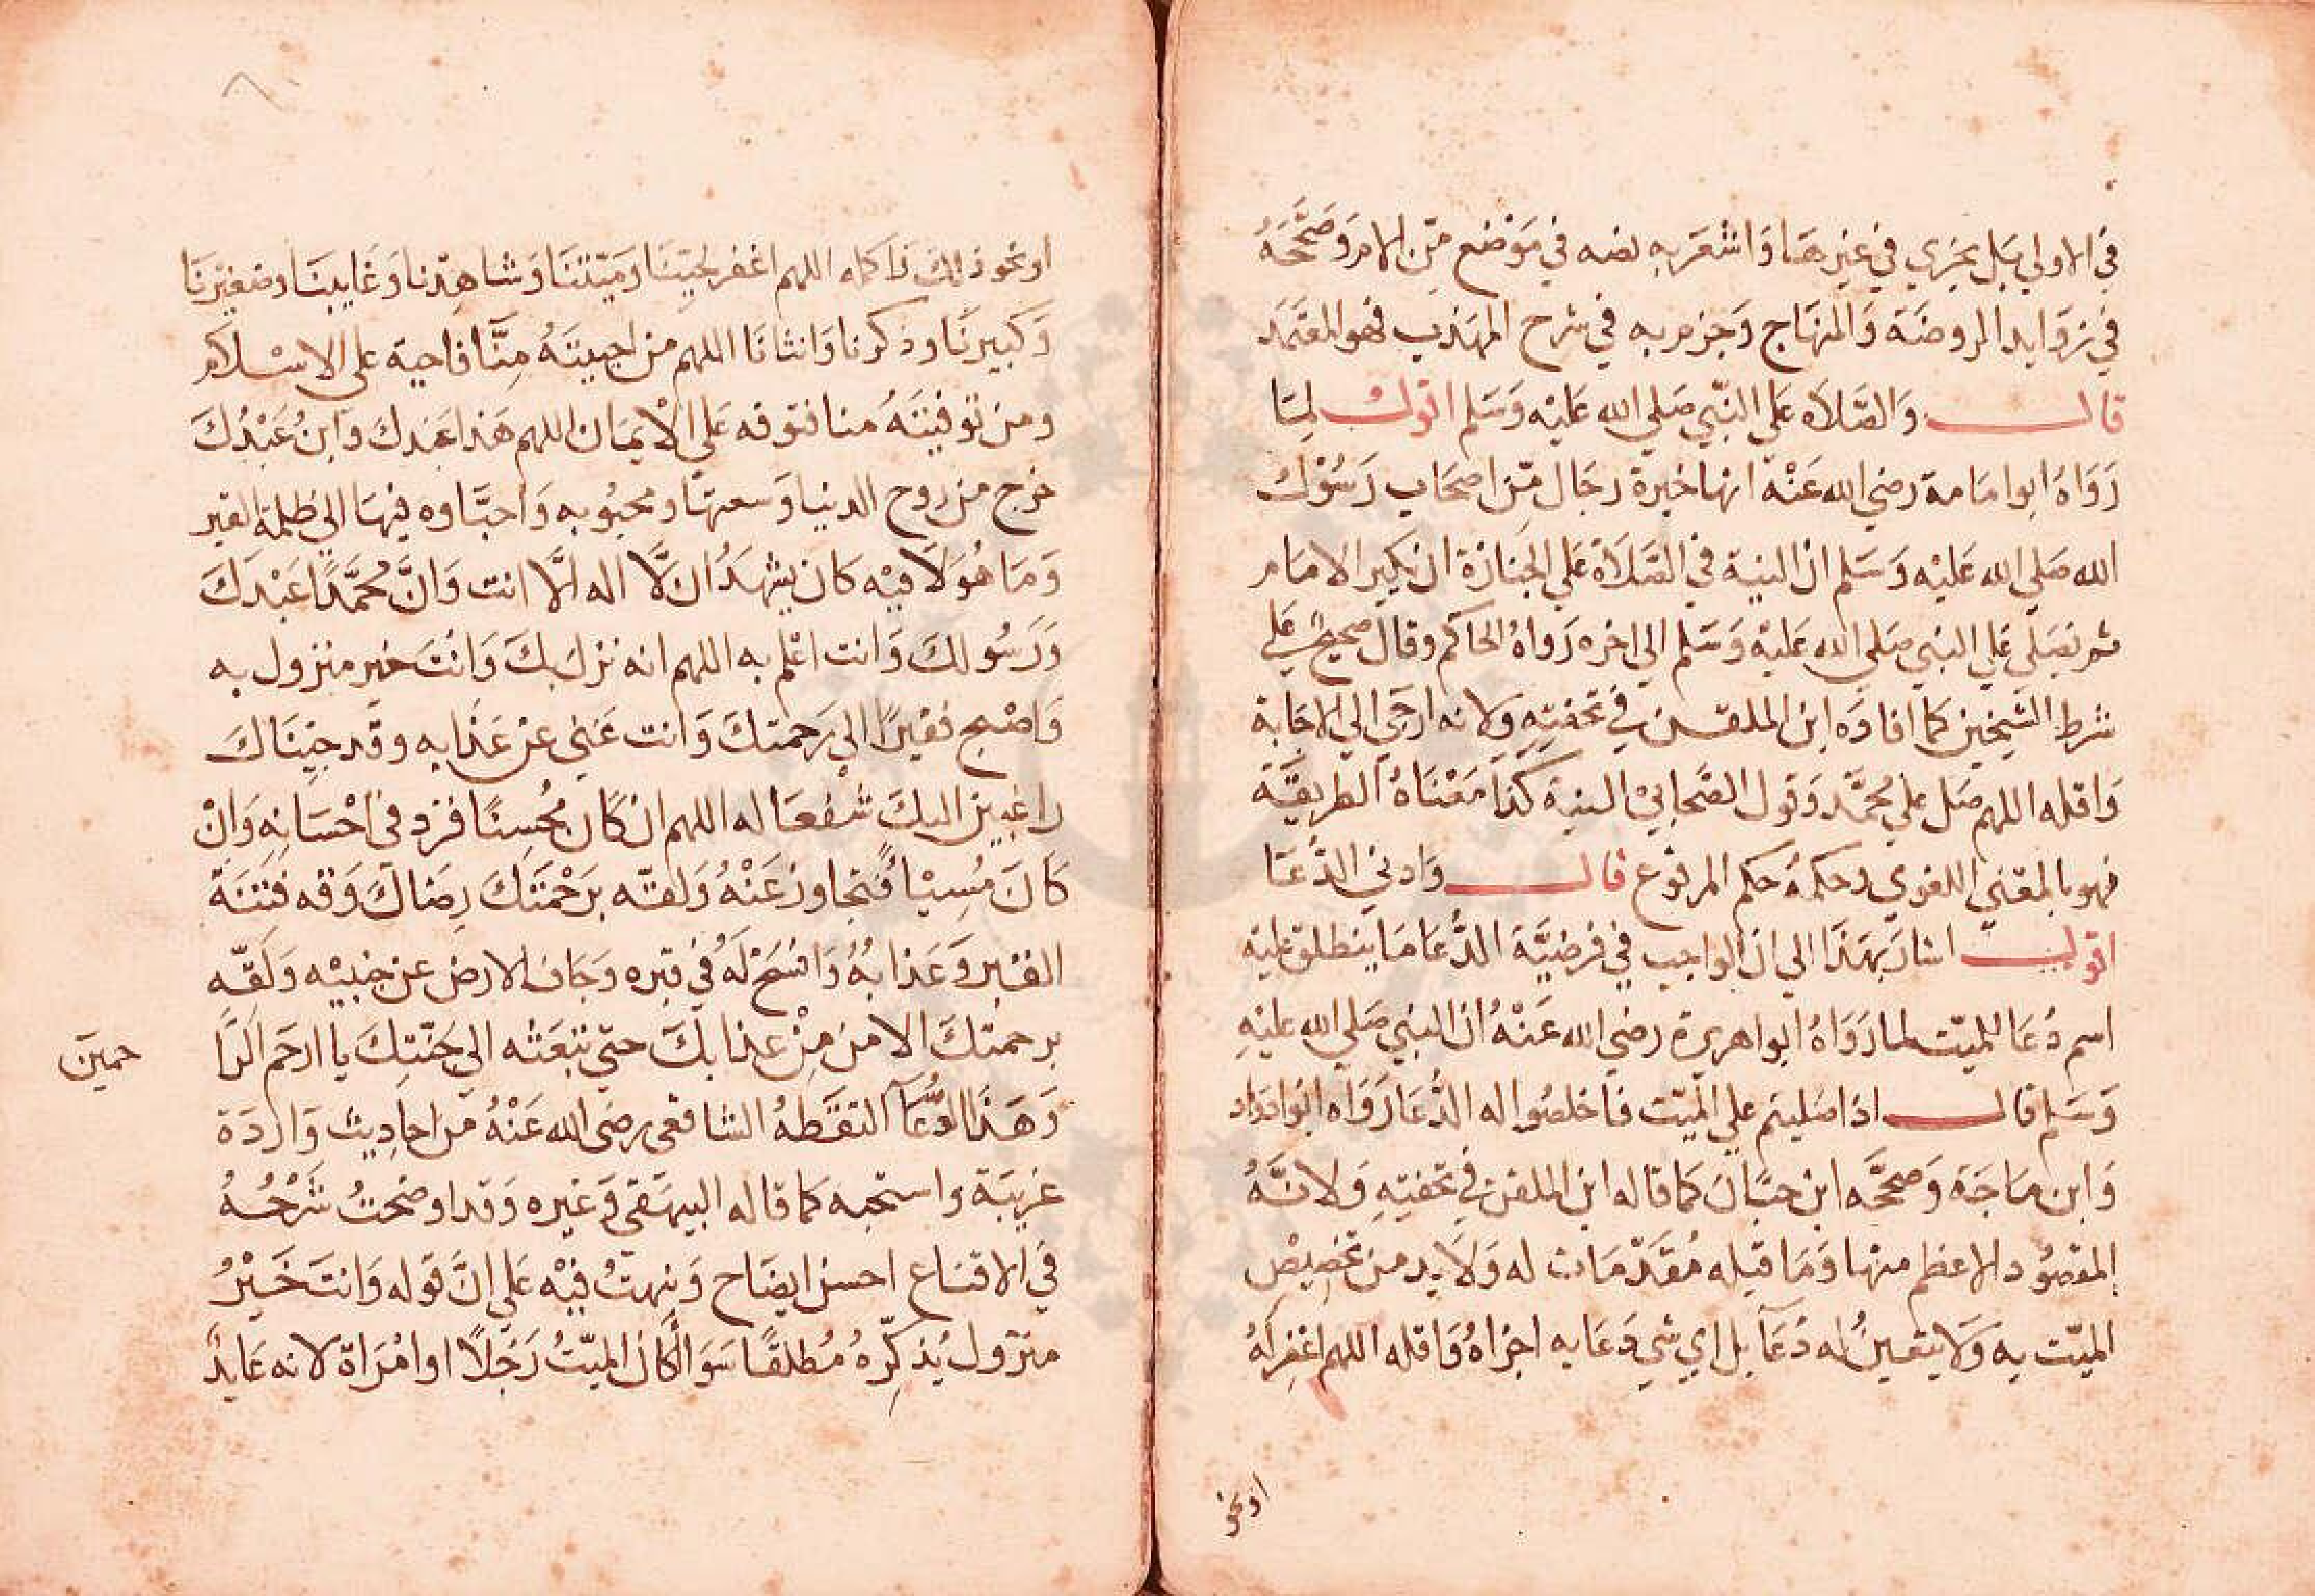 في الاولي بل يجزي في غيرها وَاشعَر به نصه في مَوْضع مِّن الامر وَصَحَّحَهُ
في زوَايد الروضَة وَالمنهَاج وَجزم به في شرح المهَذب فهو المعتمَد
قال وَالصَّلاَه عَلي النبّي صَلي الله عَليْه وَسَلم اقول لمِا
رَوَاهُ ابوا مَامة رضي الله عَنْه انها خبره رجَال مِّن اصحَاب رَسُوْل
الله صَلي الله عَليْه وَسَلم ان السنية في الصَّلاَة عَلي الجَنازة ان يكبر الامَام
ثم يصَلّي عَلي النبي صَلي الله عَليْه وَسَلم الي اخره رَواهُ الحاكم وقال صحيحٌ علي
شرط الشيخين كما افادَه ابن الملقن في تحفتِهِ ولانه ارجَي الي الاجَابة
وَاقله اللهم صَل علي محمَّد وَقول الصَّحابيْ السنية كذا مَعْنَاهُ الطريقَة
فهو بالمعَني اللغوي وحكمهُ حكم المرفوع قال وَادني الدُّعَا
اقول اشارَ بهَذَا الي ان الواجب في فرضيَّة الدُّعَا مَا ينطلق عَليْه
اسم دُعَا للميّت لما رَوَاهُ ابوا هريرة رضي الله عَنْهُ ان النبي صَلي الله عليْهِ
وَسَلم قال اذا صَليتم علي الميّت فاخلصُوا له الدُّعَا رَوَاه ابوا داود
وَابن مَاجَة وَصَححَّه ابن حبَّان كمَا قاله ابن الملقن في تحفتِهِ وَلانَّهُ
المقصُود الاعظم منهَا وَمَا قبله مُقدّمَات له وَلاَ بد من تخصِيْص
الميّت به وَلاَ يتعَين له دُعَا بل اي شي دَعَا به اجزاهُ وَاقله اللهم اغفِر لَهُ
او نحو
او نحو ذلك ذَاكله اللهم اغفر لحيّنَا ومَيّتنَا وَشاهِدنا وَغَايبنَا وصَغيرْنَا
وَكبيرنَا وذكرنا وَانثانَا اللهم من احييتَهُ مِنَّا فاحيه علي الاسْلام
ومن توفيْتَهُ منا فتوفه عَلي الْايمَان اللهم هَذا عَبدك وَابنُ عَبْدِكَ
خرج من روح الدنيا وَسعتهَا ومحبُوبه وَاحبَّاوه فيهَا الي ظلمة القبر
وَمَا هُوَ لاَقيْه كان يشهَدُ ان لَّا اله الَّا انت وَانَّ مُحمَّدًا عَبْدكَ
وَرَسُولكَ وَانت اعْلم به اللهم انه نزل بكَ وَانتَ خير منزول به
وَاصْبح فقيْرًا الي رَحمتكَ وَانت غَني عَن عَذَابه وقد جئنَاكَ
راغبين اليكَ شفعَا له اللهم ان كان مُحْسِنًا فزد في احْسَانه وَانْ
كَانَ مُسِيْأ فَتجاوز عَنْهُ وَلقّه بَرَحْمَتكَ رِضَاكَ وَقه فتنَة
القبر وَعَذابهُ وَافسَحْ لهُ في قبره وَجَاف الارض عن جنبيْه وَلقّه
برحمتكَ الامن مِنْ عذابكَ حتي تبعَثه الي جَنتِكَ يا ارحَم الرَّا
حمينَ
وَهَذا الدُّعَآ التقَطهُ الشافعي رضي الله عَنْهُ مِّن احاديث وَاردَة
غريبَة واستحبه كما قاله البيهَقي وَغيره وَقد اوضحتُ شَرْحُهُ
في الاقناع احسن ايضَاح وَنبهتُ فيْه عَلي انَّ قوله وَانتَ خَيْرُ
منزول يُذكِّرهُ مُطلقًا سَوَا اكَان الميّتُ رَجَلاً او امْرَاة لانه عَايدٌ